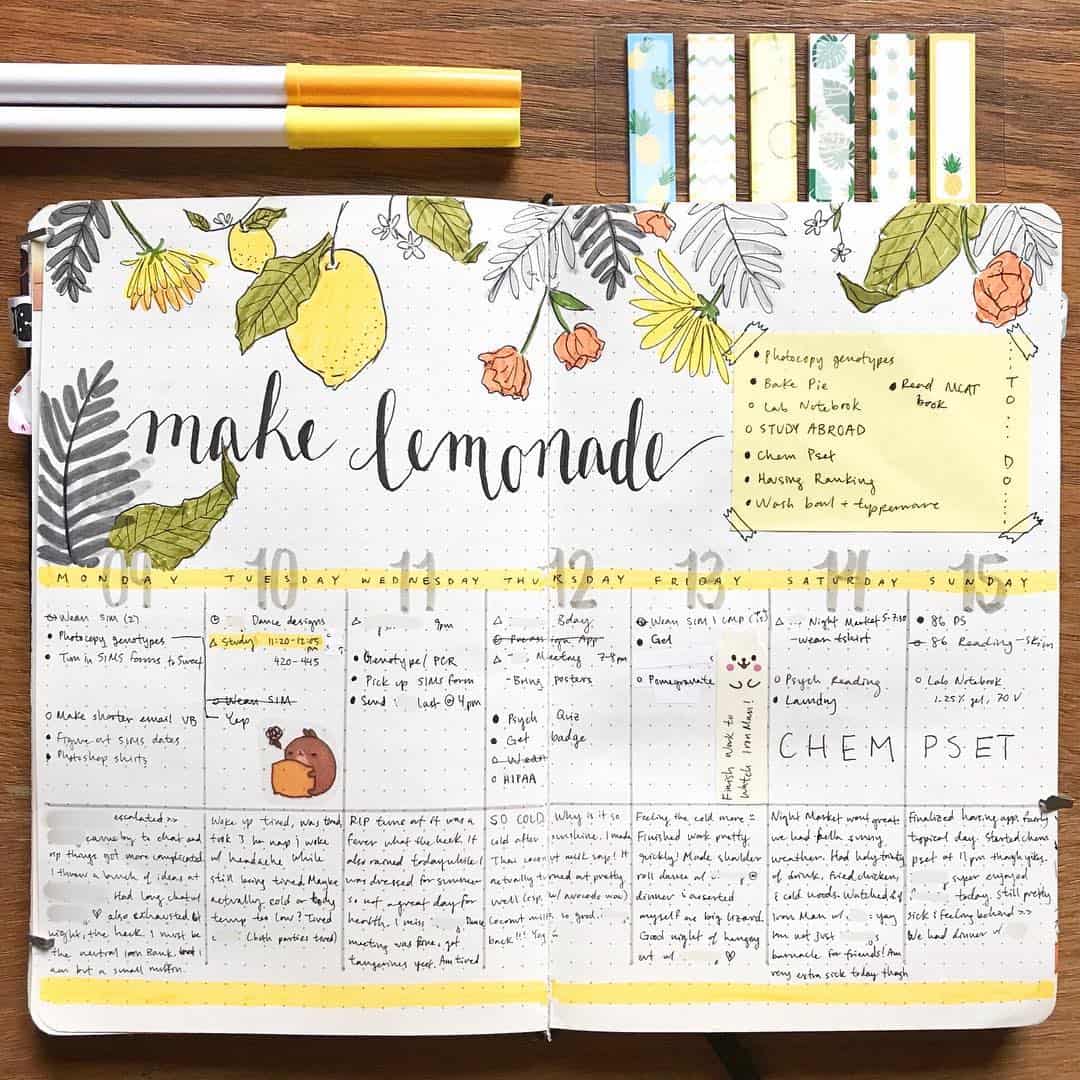 make lemonade
• Photocopy genotypes
• Bake Pie
• Read MCAT
book
○ Lab Notebook
○ STUDY ABROAD
• Chem Pset
• Housing Ranking
• Wash bowl + tupperware
TO DO
09 10 11 12 13 14 15
MONDAY TUESDAY WEDNESDAY THURSDAY FRIDAY SATURDAY SUNDAY
Wean SIM (2)
• Photocopy genotypes
• Turn in SIMS forms to Sweet
○ Make shorter email VB
• Figure out SIMS dates
• Photoshop shirts
escalated >>
came by to chat and
up things got more complicated.
I threw a bunch of ideas at
Had long chat w/
♡ also exhausted by
night, the heck. I must be
the neutral Iron Bank, but I
am but a small muffin.
Dance designs
△ Study 11:20-12:05
pm
420-445
○ Wean SIM
Yep
Woke up tired, was tired
took 3 hr nap & woke
w/ headache while
still being tired. Maybe
actually cold or body
temp too low? Tired
(both parties tired)
△ 9pm
• Genotype/PCR
• Pick up SIMS form
• Send : last @ 4pm
RIP turns out it was a
fever what the heck. It
also rained today while I
was dressed for summer
so not a great day for
health. I miss Dance
meeting was fine, got
tangerines yeet. Am tired
△ Bday
Process sign App
△ Meeting 7-8pm
-Bring posters
• Psych Quiz
• Get badge
○ Wean
○ HIPAA
SO COLD Why is it so
cold after sunshine. I made
Thai coconut milk soup! It
actually turned out pretty
well (esp. w/ avocado mm)
Coconut milk so good.
back!!! Yay
Wean SIM 1 CMP
• Get
• Pomegranate
Finish work to
watch Iron Man!
Feeling the cold more
Finished work pretty
quickly! Made shoulder
roll dance w/ @
dinner & asserted
myself as big lizard.
Good night of hangey
out w/ ♡
△ Night Market 5-7:30
-wear tshirt
○ Psych Reading
• Laundry
Night Market went great
we had hella sunny
weather. Had holy trinity
of drink, fried chicken,
& cold woods. Watched
Iron Man w/ yay
I'm not just 's
barnacle for friends! Am
very extra sick today though
• 86 PS
86 Reading - skim
○ Lab Notebook
1.25% gel, 70 V
CHEM PSET
Finalized housing app. fairly
typical day. Started chem
pset at 11 pm though yikes.
super enjoyed
today. Still pretty
sick & feeling behind >>
We had dinner w/